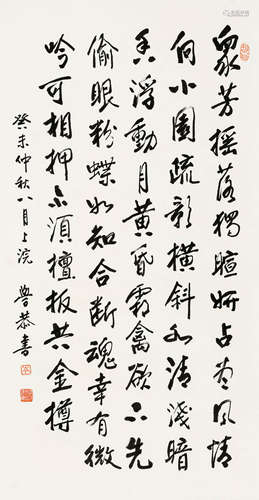 众芳摇落独暄妍占尽风情
向小园疏影横斜水清浅暗
香浮动月黄昏霜禽欲下先
偷眼粉蝶如知合断魂幸有微
吟可相狎不须檀板共金樽
癸未仲秋八月上浣 鲁恭书